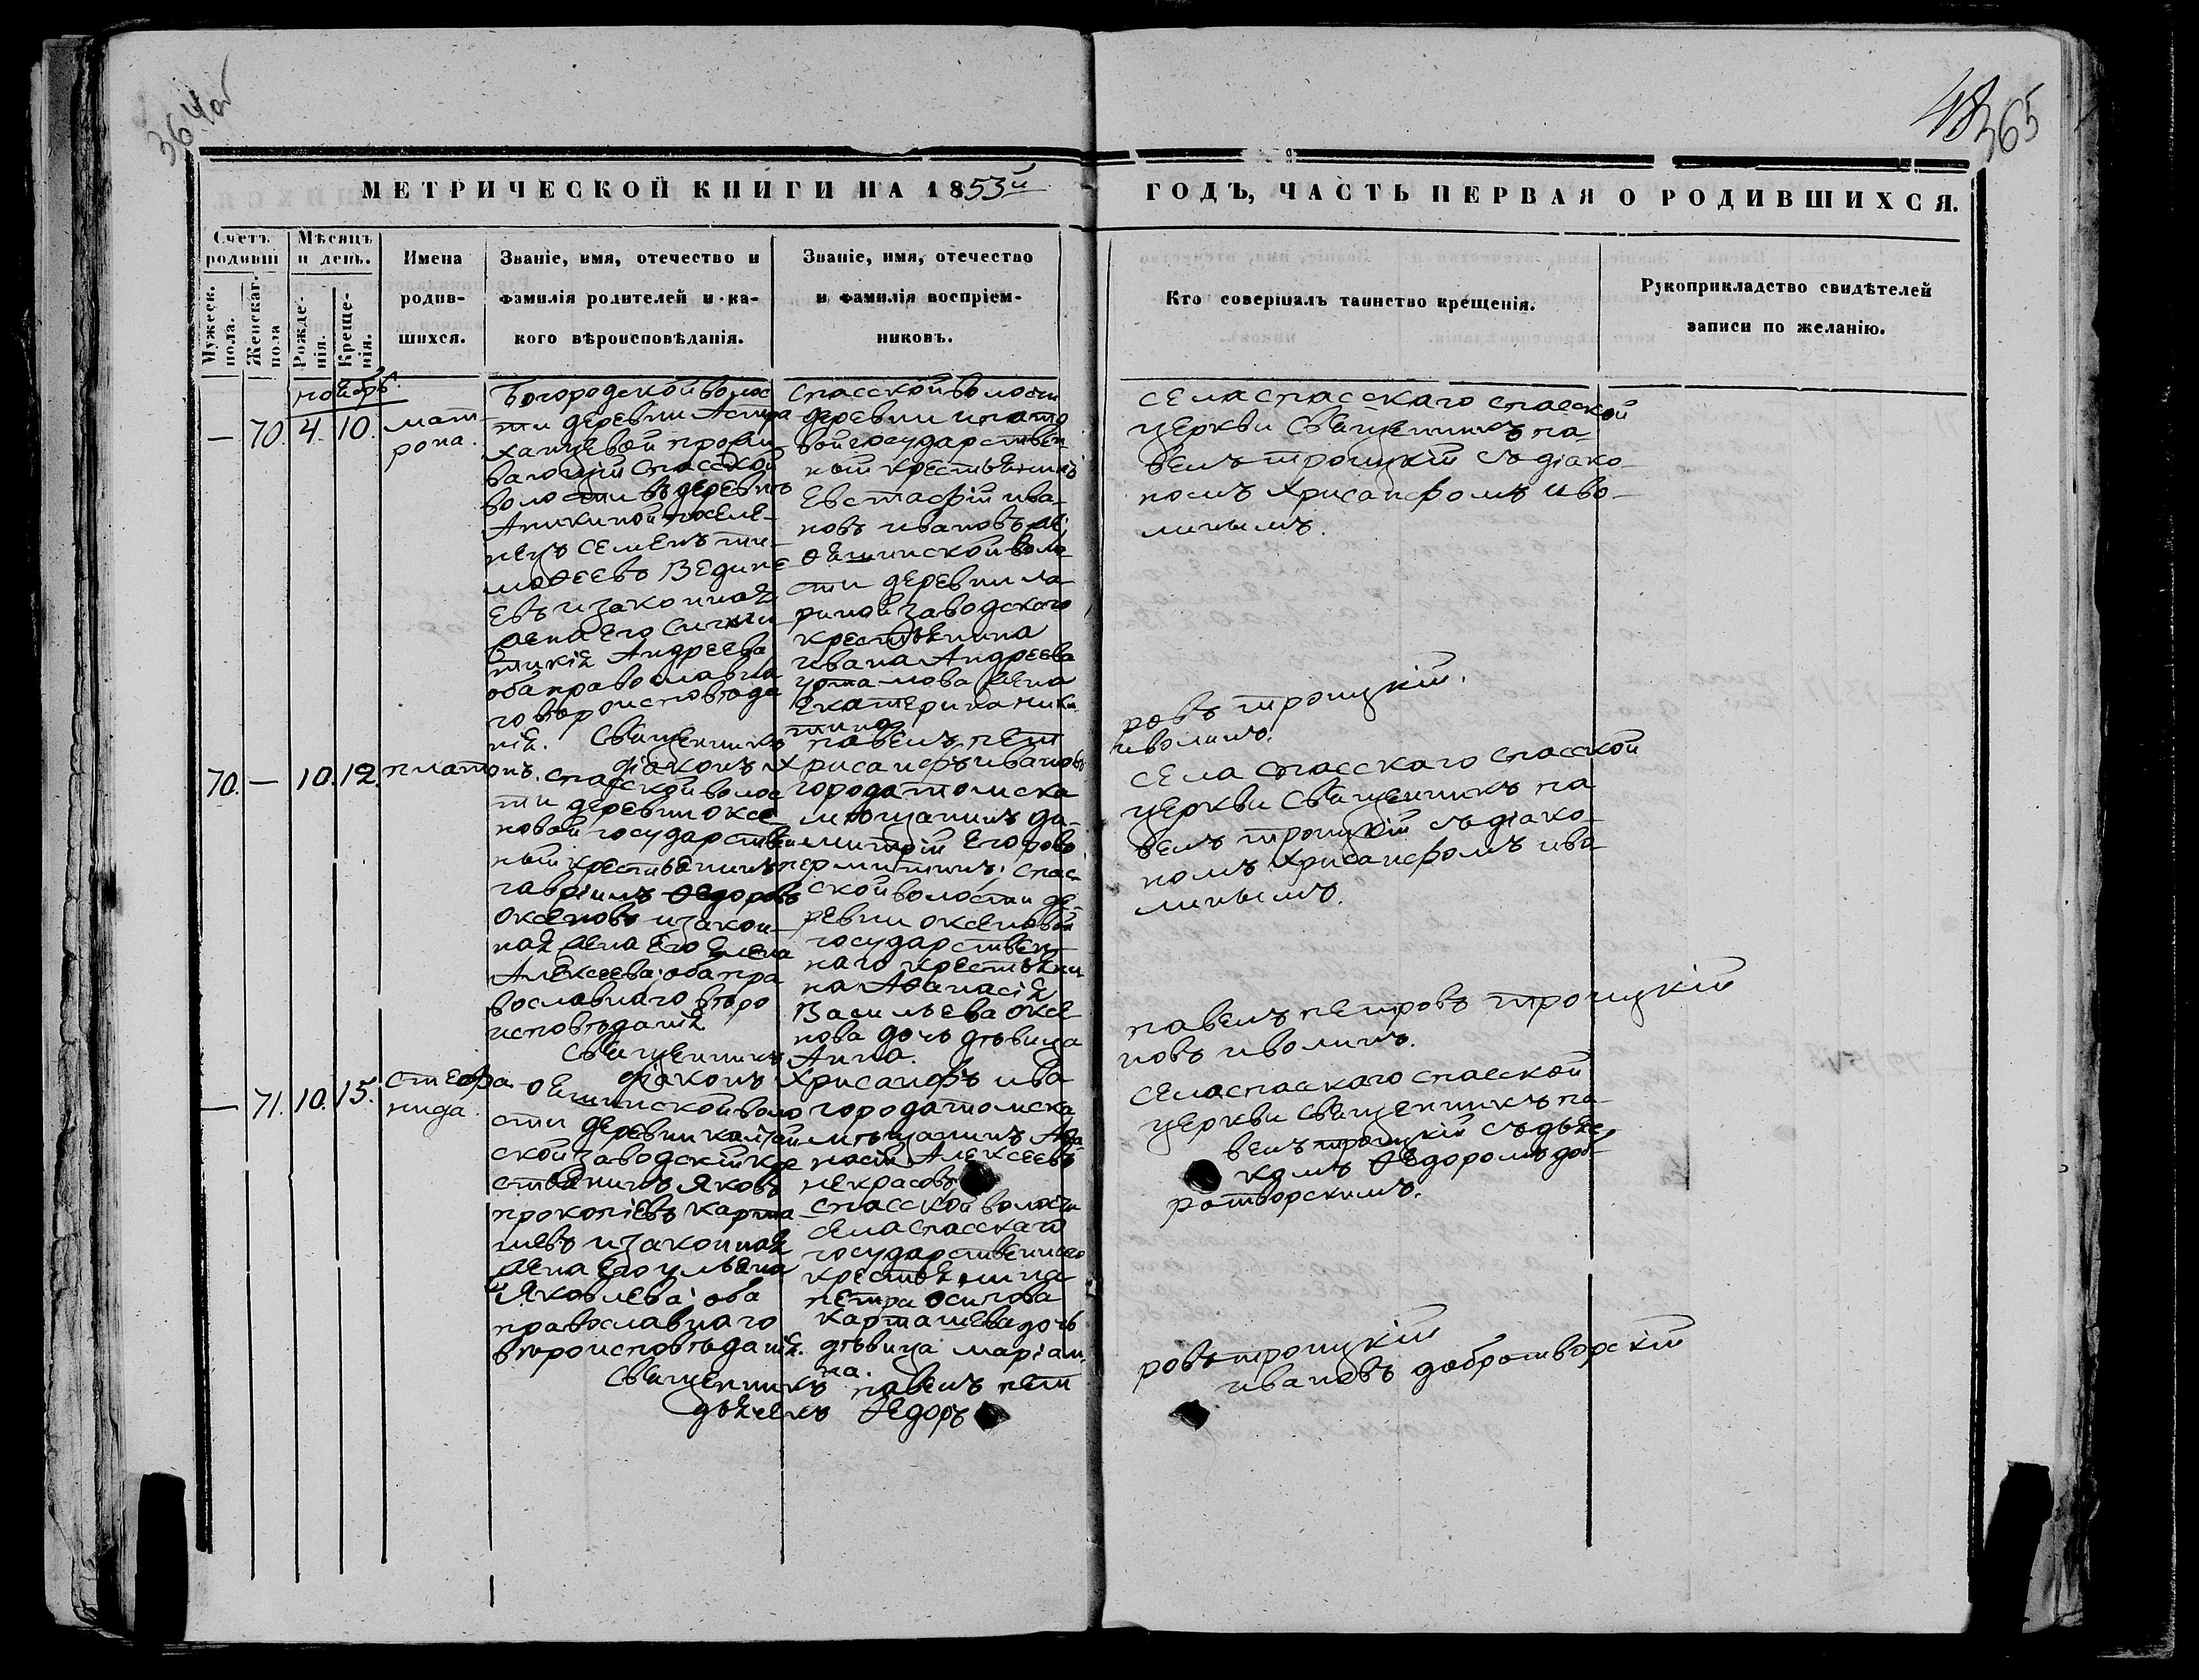 364 об
48
365
МЕТРИЧЕСКОЙ КНИГИ НА 1853й
ГОДЪ, ЧАСТЬ ПЕРВАЯ О РОДИВШИХСЯ.
Счетъ родивш
Мѣсяцъ и день.
Мужеск. пола.
Женскаг. пола
Рожде-нія.
Креще-нія.
Имена
родив-
шихся.
Званіе, имя, отечество и
фамилія родителей и ка-
кого вѣроисповѣданія.
Званіе, имя, отечество
и фамилія воспріем-
никовъ.
Кто совершалъ таинство крещенія.
Рукоприкладство свидѣтелей
записи по желанію.
ноябрь.
— 70. 4. 10.
мат
рона.
Богородской волос
ти деревни Астра
ханцевой прожи
вающій Спасской
волости въ деревнѣ
Аникиной поселе-
нецъ Семенъ ти-
моѳеевъ Ведине
евъ и законная
жена Его
Андреева
оба православна
го вѣроисповѣда
нія.
Спасской волости
деревни ипато
вой государствен
ный крестьянинъ
Евстафій ива-
новъ ивановъ;
ояшинской воло
сти деревни ла
риной заводскаго
крестьянина
ивана Андреева
жена
Екатерина ники
тина
села спасскаго спасской
церкви Священникъ па-
велъ троицкій съ діако-
номъ Хрисанфомъ иво-
линымъ.
Священникъ павелъ пет
ровъ троицкій.
діаконъ Хрисанфъ ивановъ
иволинъ.
70. — 10. 12. платонъ.
спасской волос
ти деревни оксе-
новой государствен
ный крестьянинъ
гавріилъ Ѳедоровъ
оксеновъ и закон-
ная жена Его Елена
Алексеева: оба пра
вославнаго вѣро
исповѣданія
города томска
мѣщанинъ ди-
митрій Егоровъ
пермитинъ; спас
ской волости де-
ревни оксеновой
государствен-
наго крестьяни
на Аѳанасія
Васильева оксе
нова дочь дѣвица
Анна.
села спасскаго спасской
церкви Священникъ па
велъ троицкій съ діако-
номъ Хрисанфомъ иво
линымъ.
Священникъ
павелъ петровъ троицкій
діаконъ Хрисанфъ ива
новъ иволинъ.
— 71. 10. 15.
стефа-
нида.
ояшинской воло
сти деревни
ской заводскій кре
стьянинъ Яковъ
прокопіевъ карта
шевъ и законная
жена Его ульяна
Яковлева: оба
православнаго
вѣроисповѣданія.
города томска
мѣщанинъ Аѳа-
насій Алексеевъ
некрасовъ
спасской волости
села спасскаго
государственнаго
крестьянина
петра осипова
карташева дочь
дѣвица маріам
на.
села спаскаго спасской
церкви Священникъ па-
велъ троицкій съ дьяч
комъ Ѳедоромъ доб-
ротворскимъ.
Священникъ павелъ пет
ровъ троицкій
дьячекъ Ѳедоръ
ивановъ добротворскій